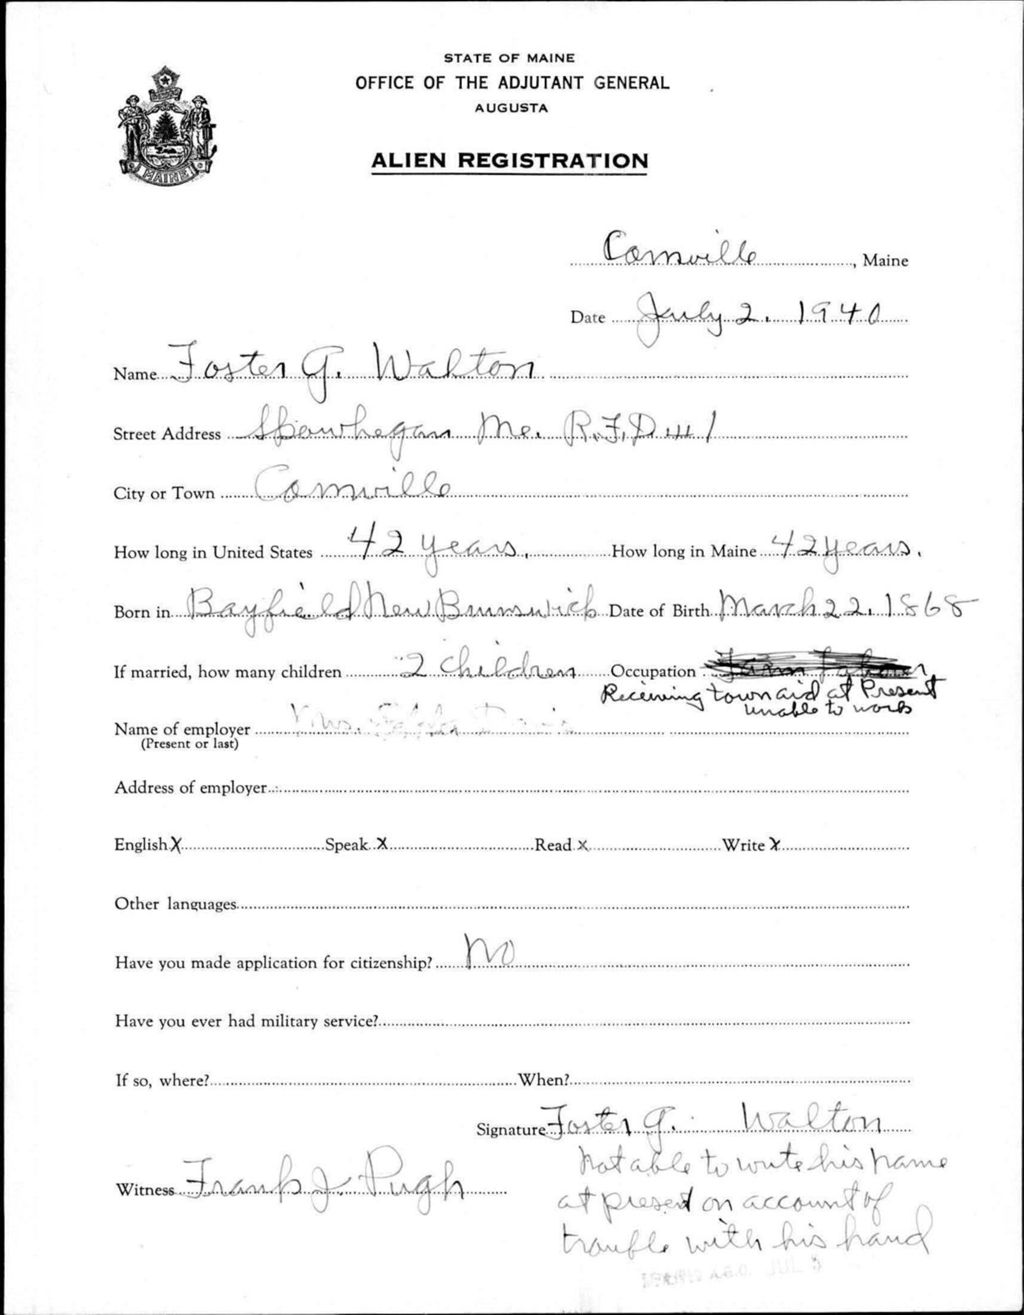 STATE OF MAINE
OFFICE OF THE ADJUTANT GENERAL
AUGUSTA
ALIEN REGISTRATION
MAINE
Cornville, Maine
Date July 2, 1940
Name Foster G. Walton
Street Address Skowhegan Me. R.F.D # 1
City or Town Cornville
How long in United States 42 years. How long in Maine 42 years.
Born in Bayfield New Brunswick Date of Birth March 22, 1868
If married, how many children 2 children Occupation
Receiving town aid at Present
unable to work
Name of employer Mrs. Davis
(Present or last)
Address of employer
English X Speak X Read X Write X
Other languages
Have you made application for citizenship? No
Have you ever had military service?
If so, where? When?
Signature Foster G. Walton
Witness Frank J. Pugh
Not able to write his name
at present on account of
trouble with his hand
A.G.O. JUL